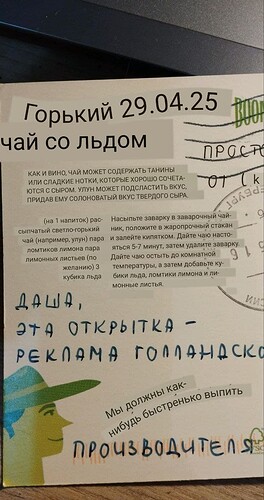 Горький 29.04.25
чай со льдом
BOOM
ПРОСТО
ОТ
КАК И ВИНО, ЧАЙ МОЖЕТ СОДЕРЖАТЬ ТАНИНЫ
ИЛИ СЛАДКИЕ НОТКИ, КОТОРЫЕ ХОРОШО СОЧЕТА-
ЮТСЯ С СЫРОМ. УЛУН МОЖЕТ ПОДСЛАСТИТЬ ВКУС,
ПРИДАВ ЕМУ СОЛОНОВАТЫЙ ВКУС ТВЕРДОГО СЫРА.
(на 1 напиток) рас-
сыпчатый светло-горький
чай (например, улун) пара
ломтиков лимона пара
лимонных листьев (по
желанию) 3
кубика льда
Насыпьте заварку в заварочный чай-
ник, положите в жаропрочный стакан
и залейте кипятком. Дайте чаю насто-
яться 5-7 минут, затем удалите заварку.
Дайте чаю остыть до комнатной
температуры, а затем добавьте ку-
бики льда, ломтики лимона и ли-
монные листья.
ДАША,
ЭТА ОТКРЫТКА –
РЕКЛАМА ГОЛЛАНДСКО
Мы должны как-
нибудь быстренько выпить
ПРОИЗВОДИТЕЛЯ